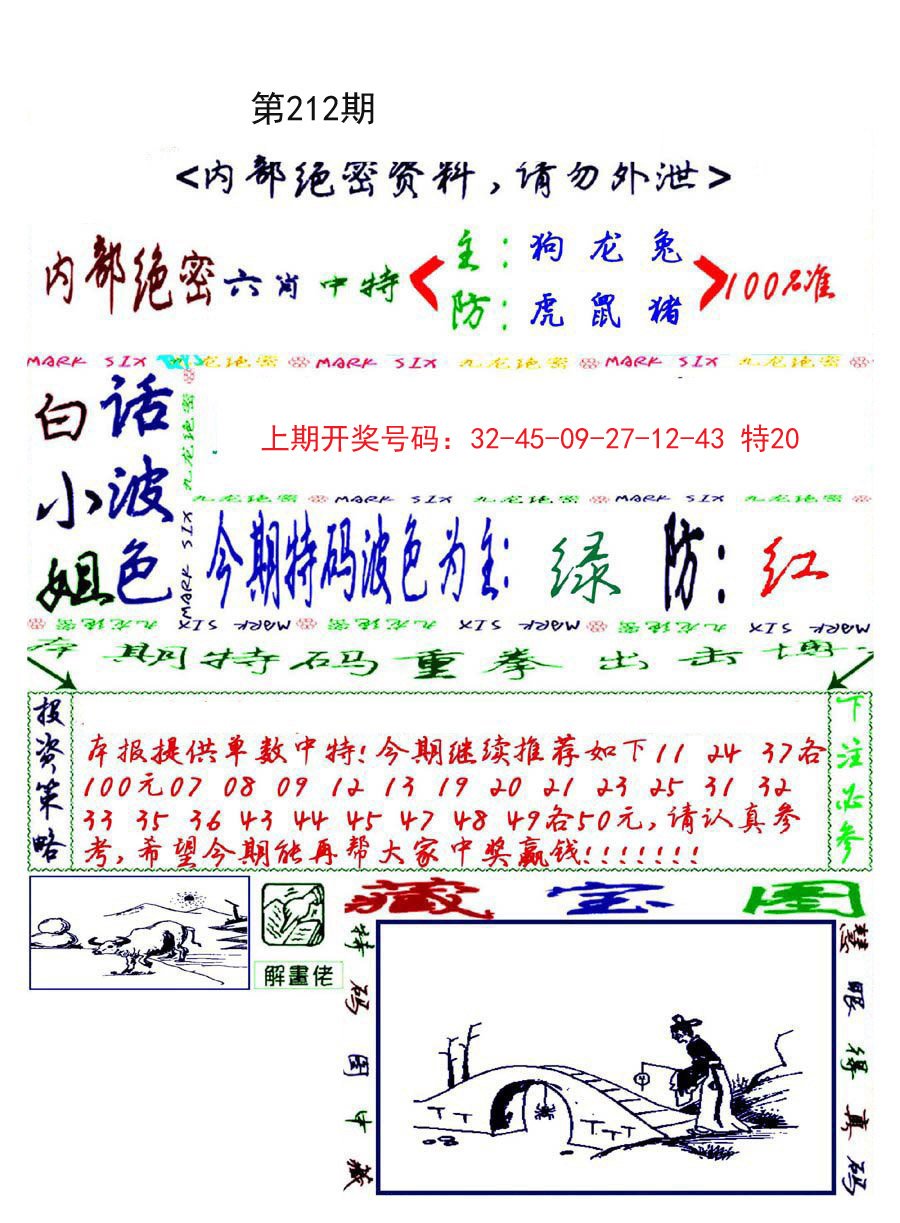 第212期
<内部绝密资料,请勿外泄>
内部绝密六肖中特
主:狗 龙 兔
防:虎 鼠 猪
100%准
MARK SIX 九龙绝密 MARK SIX 九龙绝密 MARK SIX 九龙绝密
白小姐
话波色
九龙绝密
MARK SIX
上期开奖号码：32-45-09-27-12-43 特20
九龙绝密 MARK SIX 九龙绝密 MARK SIX 九龙绝密
今期特码波色为主:绿 防:红
九龙绝密 MARK SIX 九龙绝密 MARK SIX 九龙绝密 MARK SIX
本期特码重拳出击博
投资策略
本报提供单数中特!今期继续推荐如下11 24 37各
100元07 08 09 12 13 19 20 21 23 25 31 32
33 35 36 43 44 45 47 48 49各50元,请认真参
考,希望今期能再帮大家中奖赢钱!!!!!!!
下注必参
解畫佬
藏宝图
特码图中藏
慧眼得真码